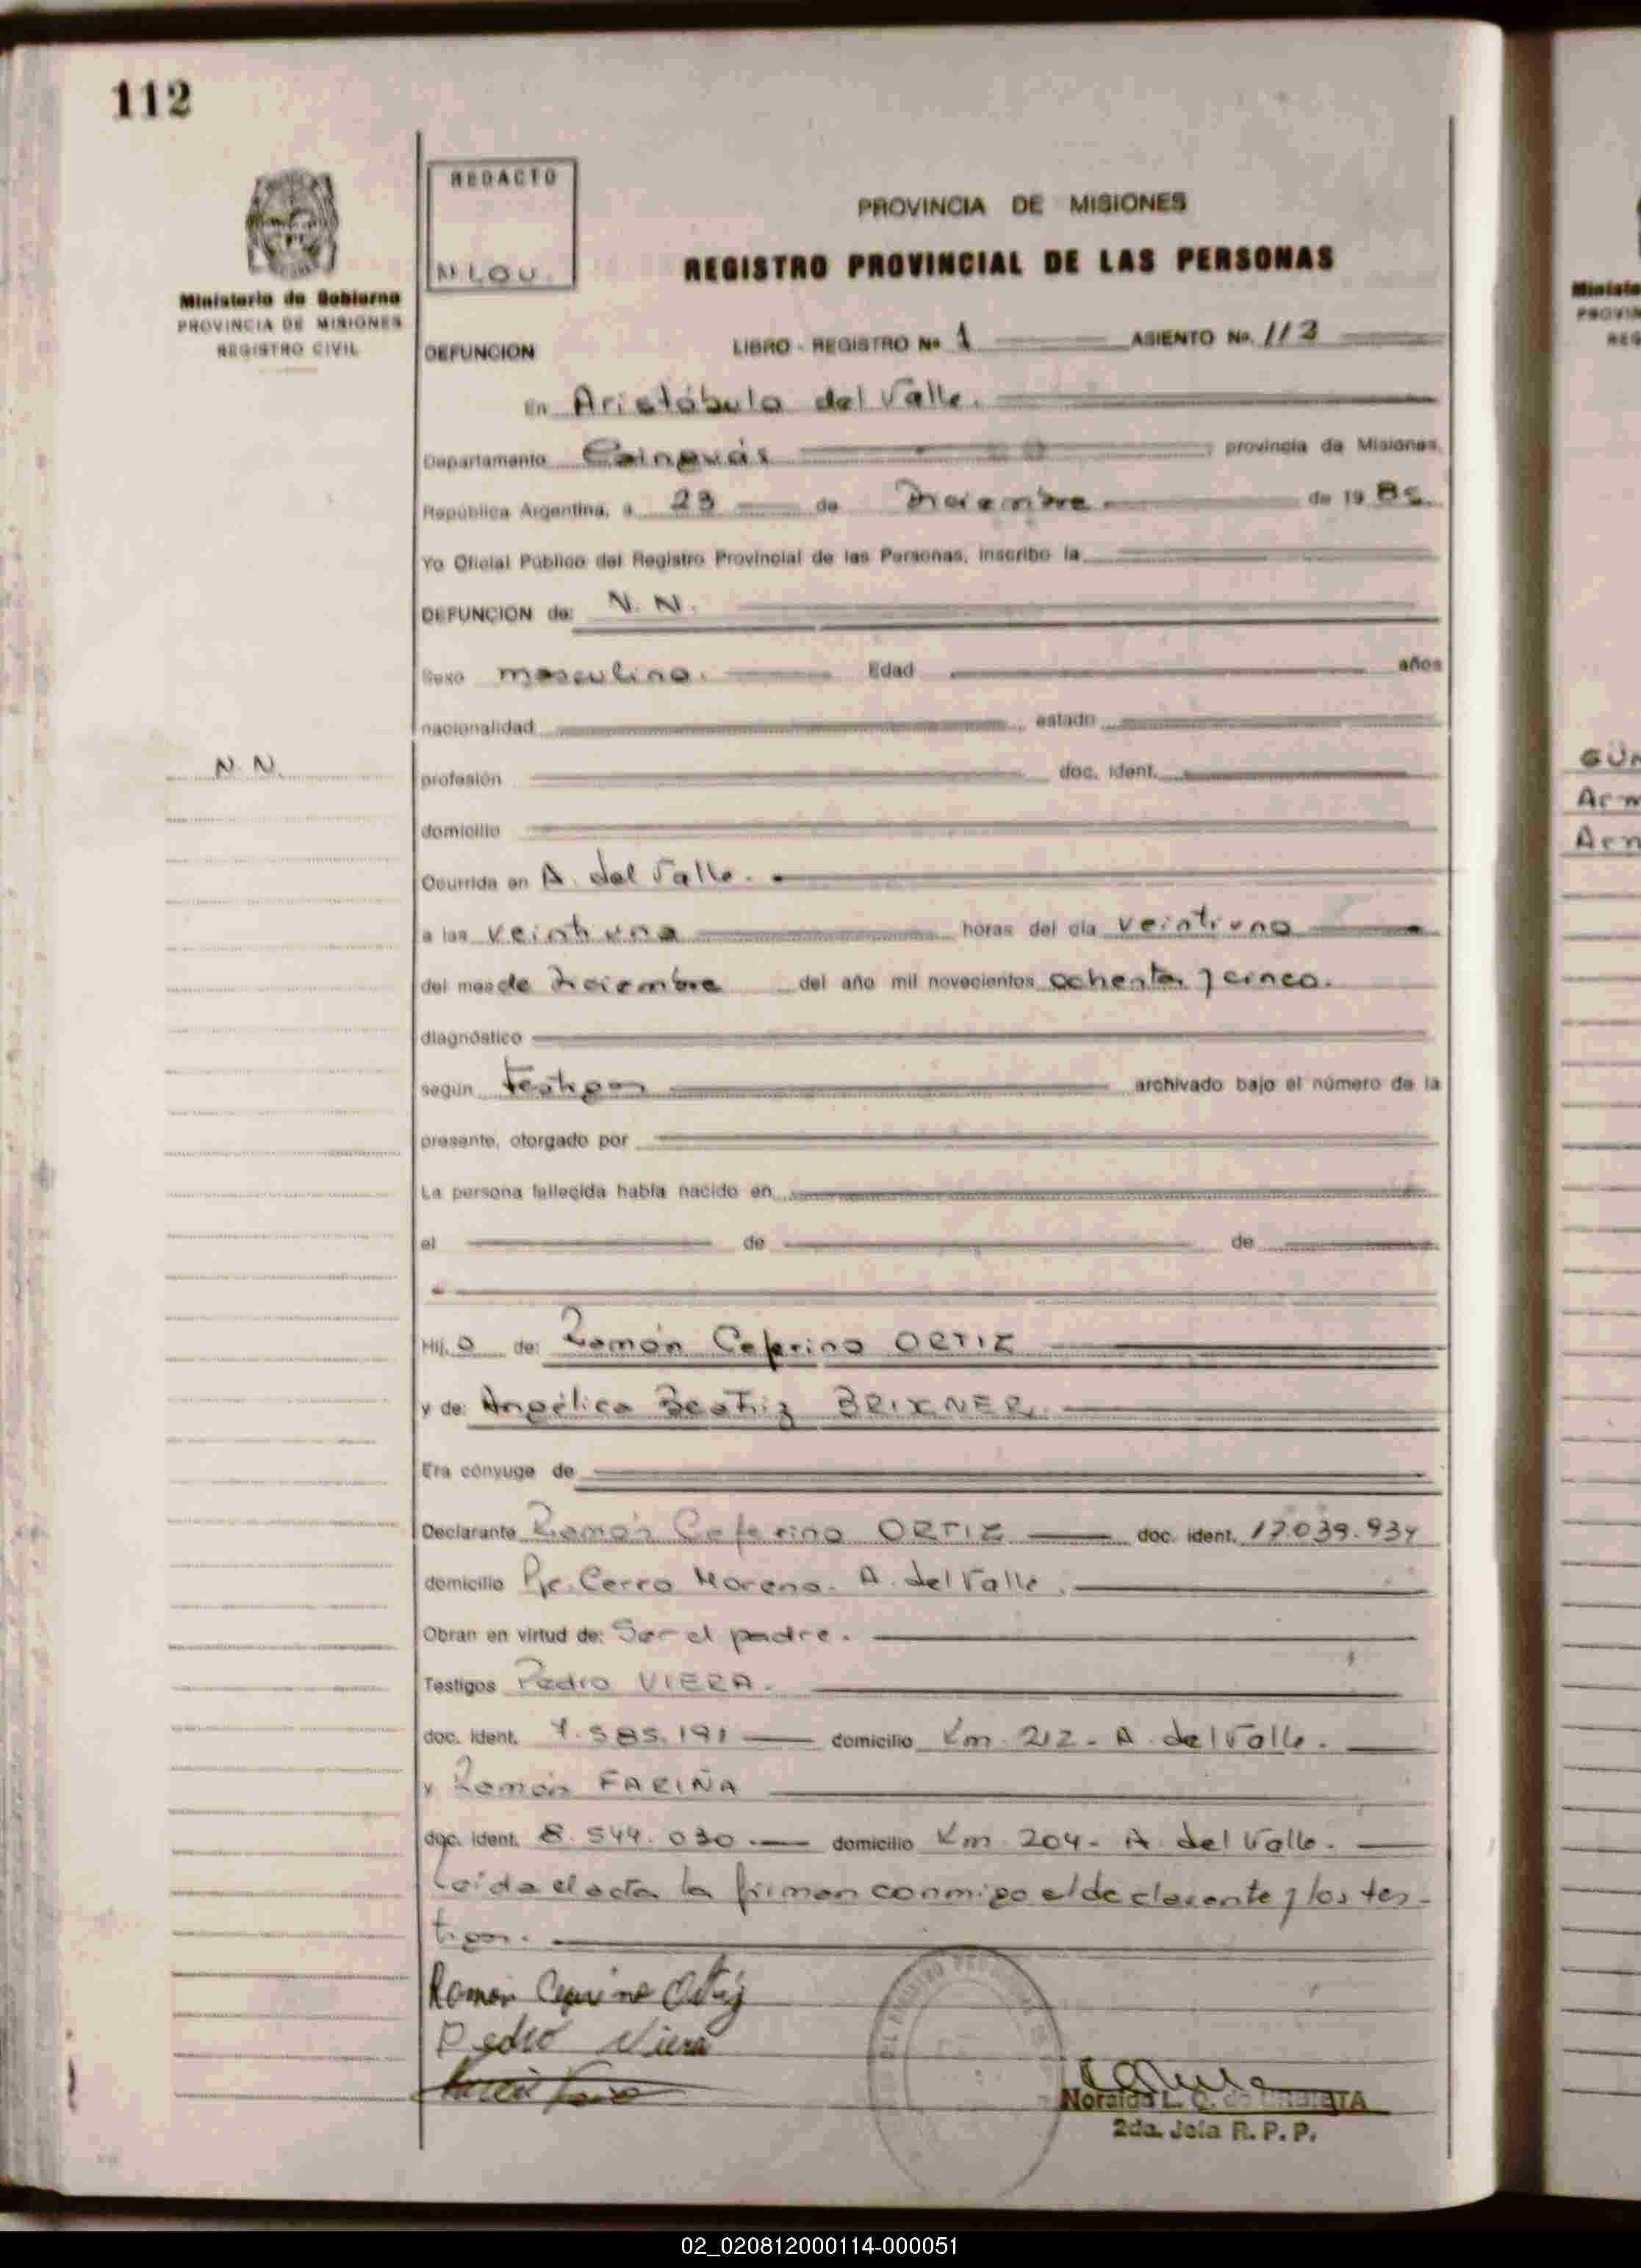 112
REDACTO
N.L.Q.U.
Ministerio de Gobierno
PROVINCIA DE MISIONES
REGISTRO CIVIL
PROVINCIA DE MISIONES
REGISTRO PROVINCIAL DE LAS PERSONAS
DEFUNCION LIBRO - REGISTRO Nº 1 ASIENTO No. 113
En Aristóbulo del Valle.
Departamento Cainguás provincia de Misiones,
República Argentina, a 23 de Diciembre de 19 85.
Yo Oficial Público del Registro Provincial de las Personas, inscribo la
DEFUNCION de: N. N.
Sexo masculino. Edad años
nacionalidad estado
N. N.
profesión doc. ident.
domicilio
Ocurrida en A. del Valle.
a las veintiuna horas del día veintiuno
del mes de Diciembre del año mil novecientos ochenta y cinco.
diagnóstico
según testigos archivado bajo el número de la
presente, otorgado por
La persona fallecida había nacido en
el de de
Hij o de: Ramón Ceferino ORTIZ
y de: Angélica Beatriz BRIXNER.
Era cónyuge de
Declarante Ramón Ceferino ORTIZ doc. ident. 17.039.934
domicilio Pje. Cerro Moreno. A. del Valle.
Obran en virtud de: Ser el padre.
Testigos Pedro VIERA.
doc. ident. 7.585.191 domicilio Km. 212 - A. del Valle.
y Ramón FARIÑA
doc. ident. 8.544.030 domicilio Km 204 - A. del Valle.
Leída el acta la firman conmigo el declarante y los tes-
tigos.
Ramon Ceferino Ortiz
Pedro Viera
Noraida L. Q. de
2da. Jefa R. P. P.
GUN
Ministe
PROVIN
REG
02_020812000114-000051